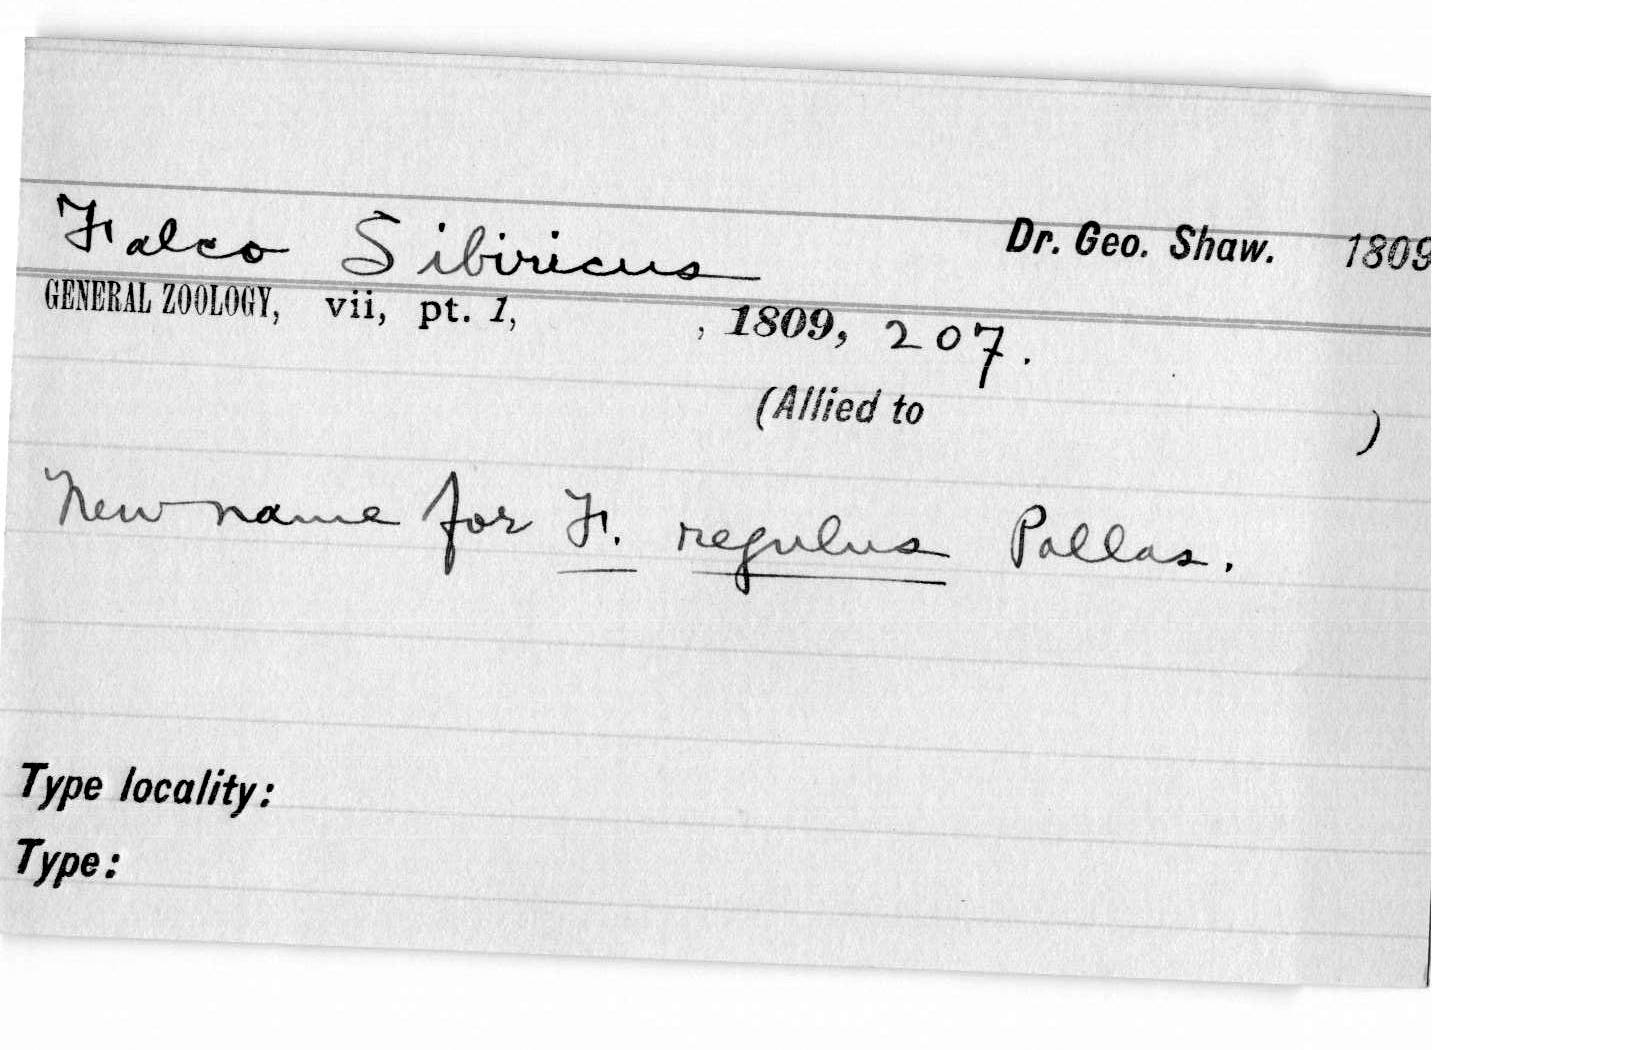 Falco Sibiricus Dr. Geo. Shaw. 1809
GENERAL ZOOLOGY, vii, pt. 1, , 1809, 207.
(Allied to )
New name for F. regulus Pallas.
Type locality:
Type: